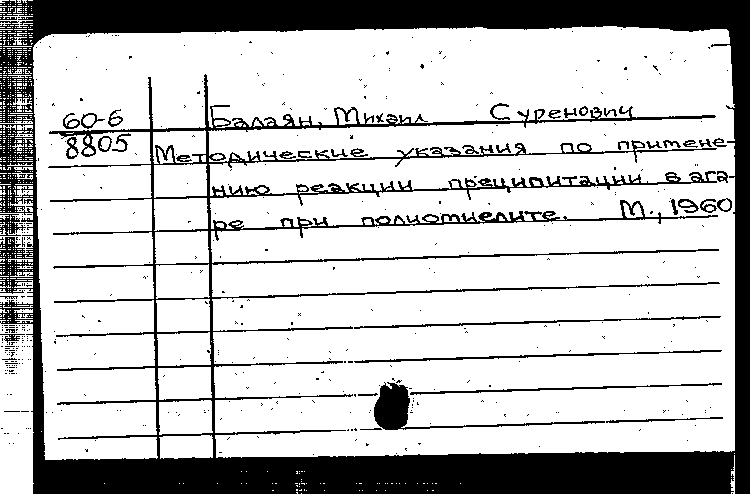 60-6 Балаян, Михаил Суренович
8805 Методические указания по примене-
нию реакции преципитации в ага-
ре при полиомиелите. М., 1960